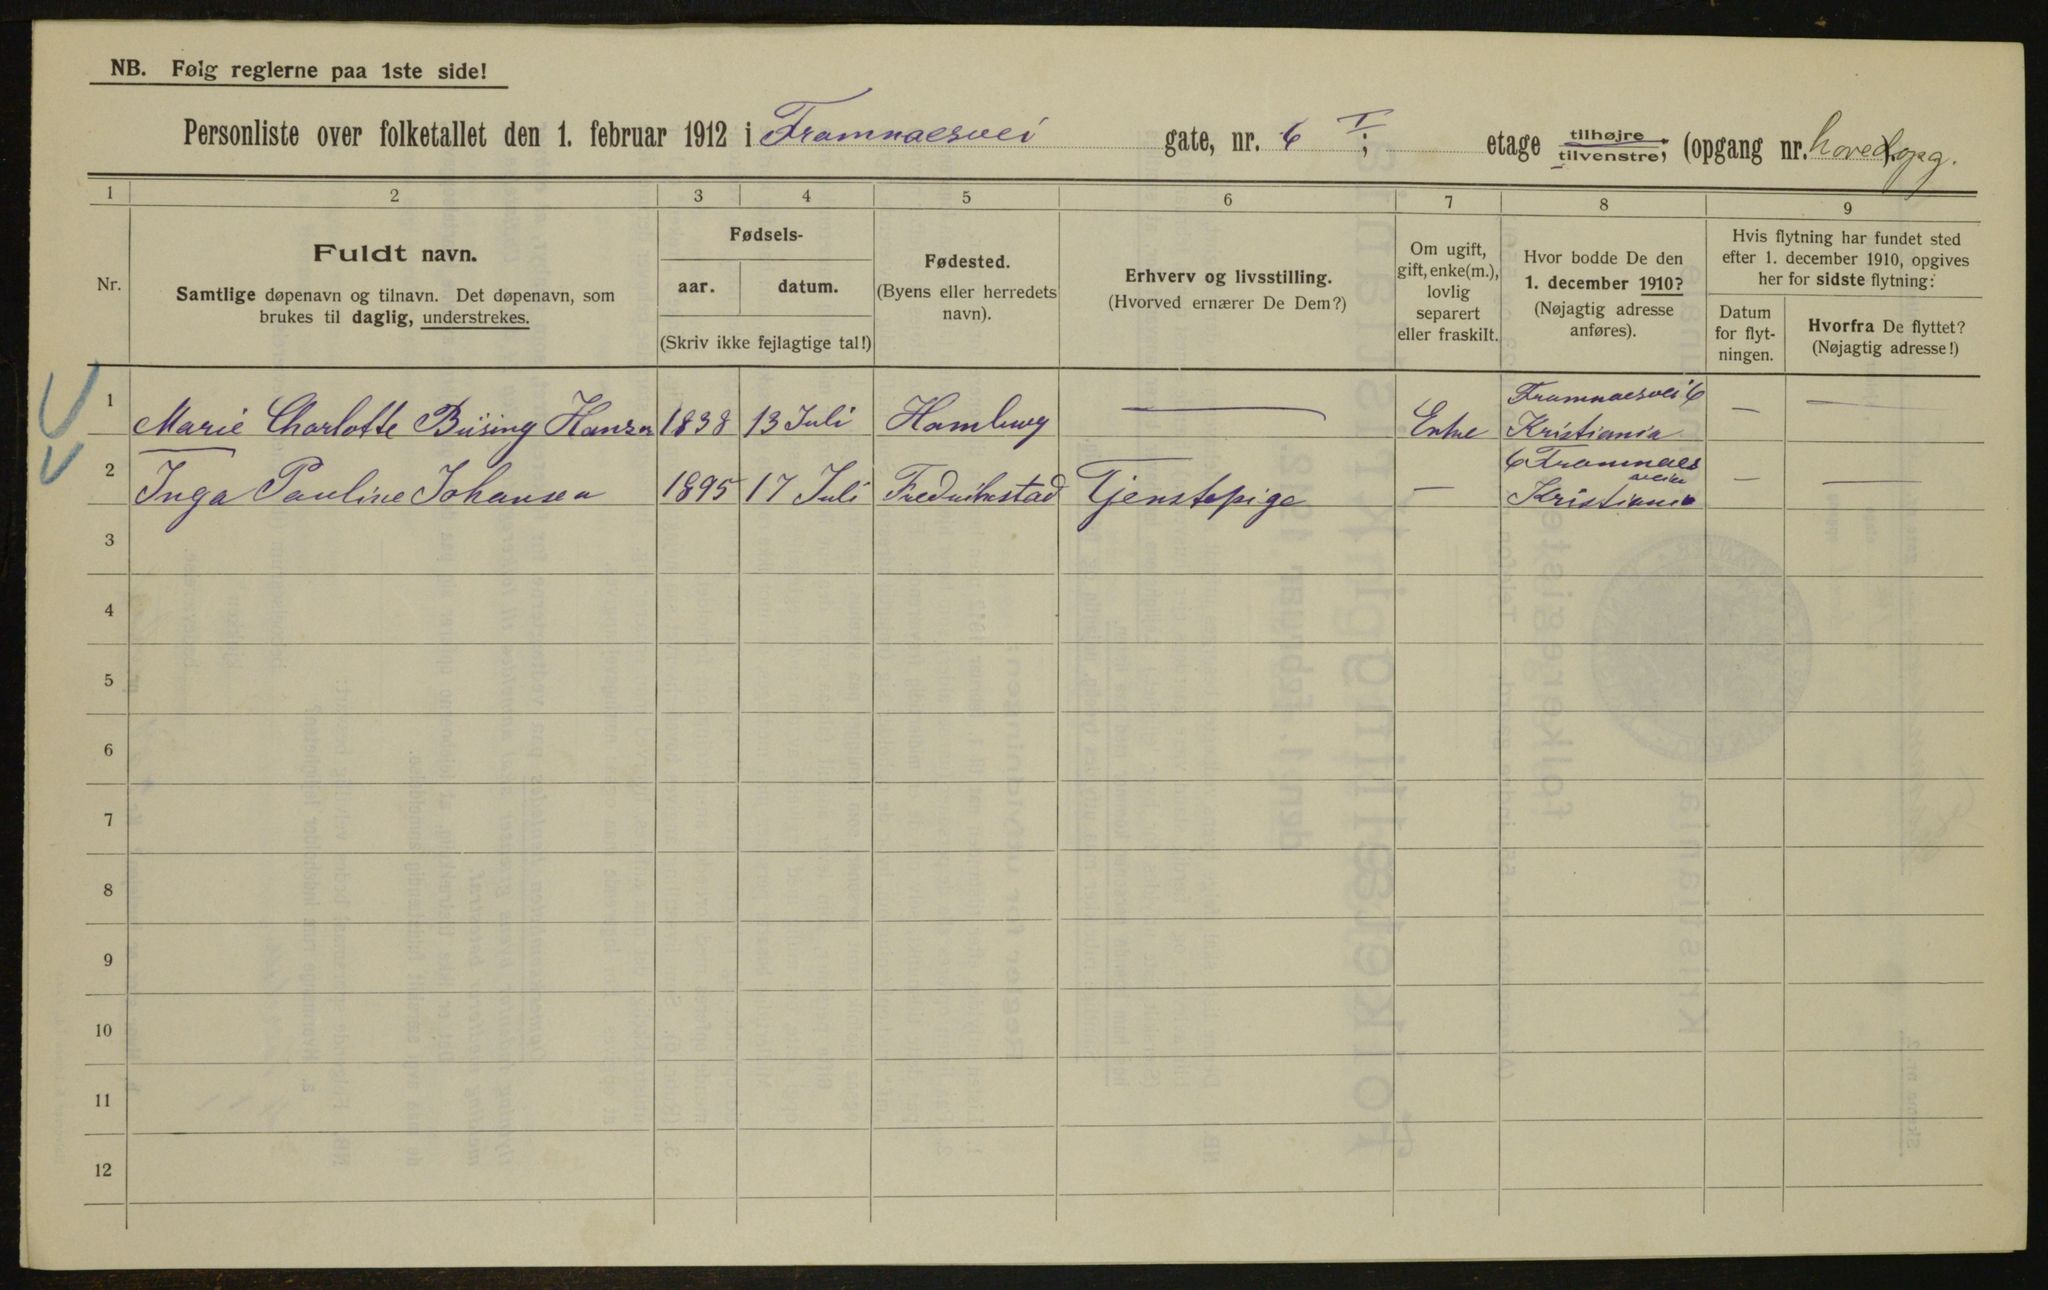 NB. Følg reglerne paa 1ste side!
Personliste over folketallet den 1. februar 1912 i Framnaesvei gate, nr. 6 I; etage tilhøjre/tilvenstre; (opgang nr. hovedopg.
1 2 3 4 5 6 7 8 9
Nr.
Fuldt navn.
Samtlige døpenavn og tilnavn. Det døpenavn, som
brukes til daglig, understrekes.
Fødsels-
aar. datum.
(Skriv ikke fejlagtige tal!)
Fødested.
(Byens eller herredets
navn).
Erhverv og livsstilling.
(Hvorved ernærer De Dem?)
Om ugift,
gift, enke(m.),
lovlig
separert
eller fraskilt.
Hvor bodde De den
1. december 1910?
(Nøjagtig adresse
anføres).
Hvis flytning har fundet sted
efter 1. december 1910, opgives
her for sidste flytning:
Datum
for flyt-
ningen.
Hvorfra De flyttet?
(Nøjagtig adresse!)
1 Marie Charlotte Büsing Hansen 1838 13 Juli Hamburg — Enke Framnaesvei 6
Kristiania — —
2 Inga Pauline Johansen 1895 17 Juli Fredrikstad Tjenstepige — 6 Framnaes
veien
Kristiania — —
3
4
5
6
7
8
9
10
11
12